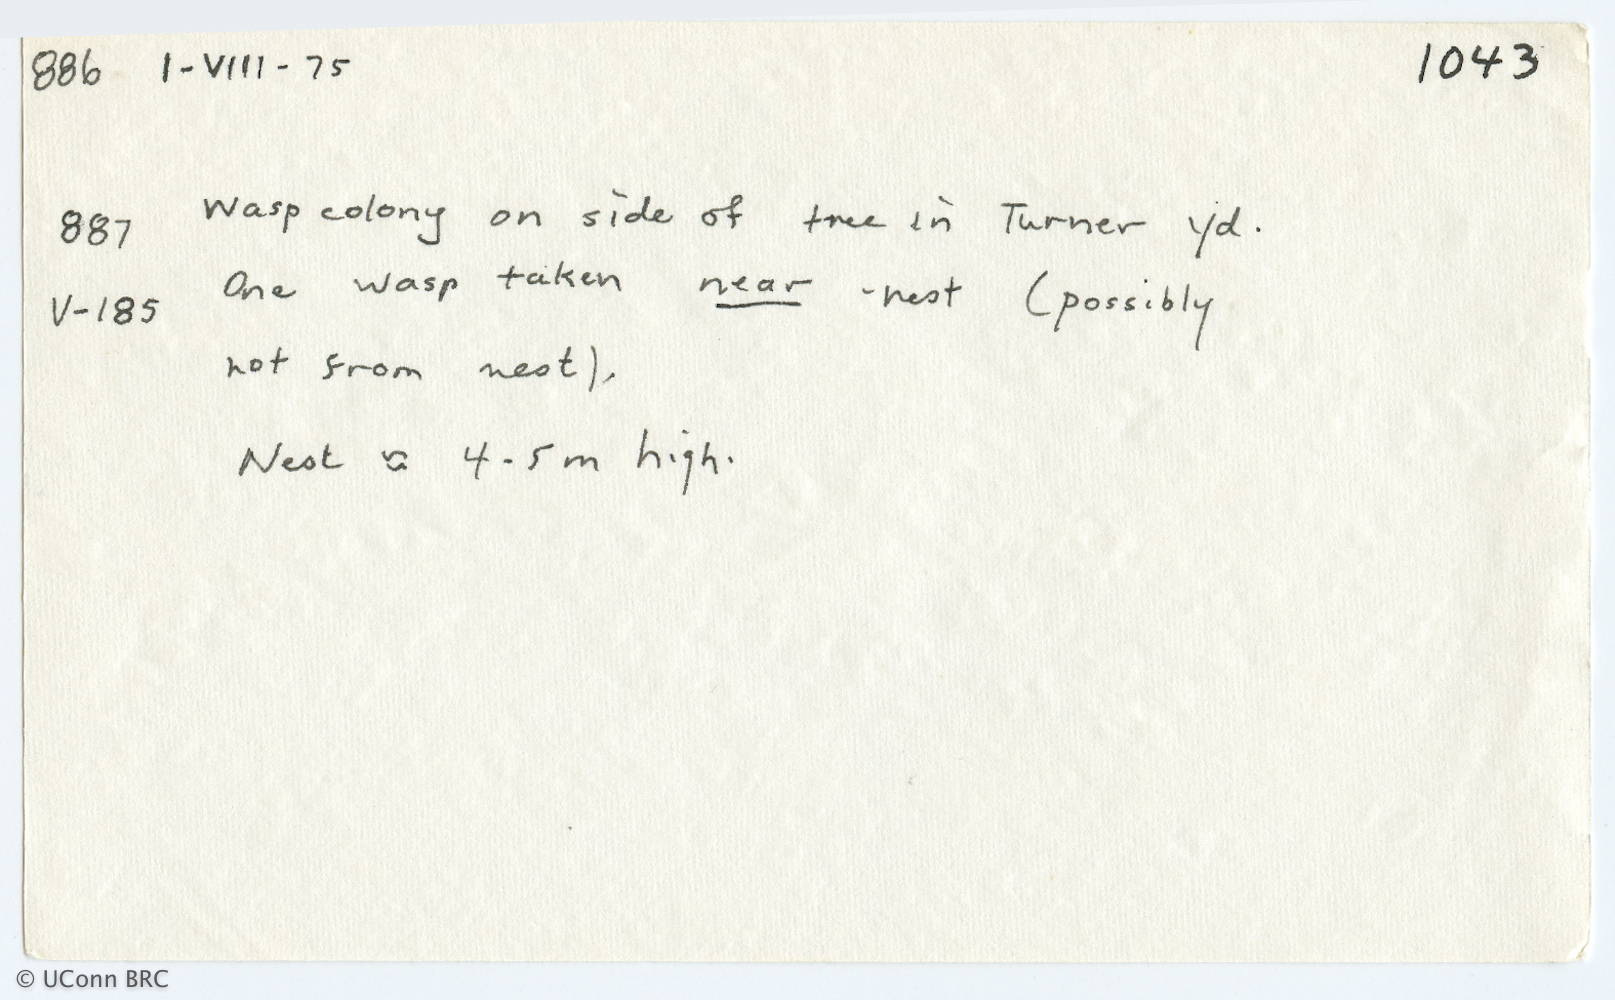 886 1-VIII-75 1043
887 Wasp colony on side of tree in Turner yd.
V-185 One wasp taken near nest (possibly
not from nest).
Nest ≈ 4-5m high.
© UConn BRC